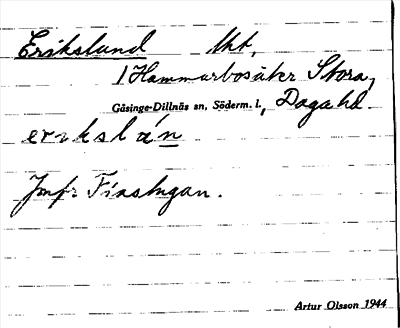 Erikslund lht,
1 Hammarbosäter Stora,
Gåsinge-Dillnäs sn, Söderm. l., Daga hd.
erikslán
Jmfr Finstugan.
Artur Olsson 1944